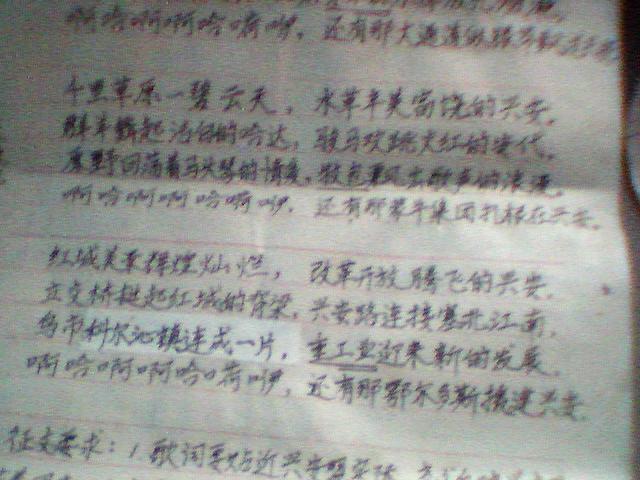 啊哈啊啊哈嗬咿，还有那大通道纵横
千里草原一碧云天，水草丰美富饶的兴安。
胖羊舞起洁白的哈达，骏马欢跳火红的年代。
原野回荡着马头琴的情意，牧包里飞出歌声的浪漫。
啊哈啊啊哈嗬咿，还有那蒙牛集团扎根在兴安。
红城美景辉煌灿烂，改革开放腾飞的兴安。
立交桥挺起红城的脊梁，兴安路连接塞北江南，
乌市科尔沁镇连成一片，重工业迎来新的发展。
啊哈啊啊哈嗬咿，还有那鄂尔多斯援建兴安
征文要求：1.歌词要贴近兴安盟实际，